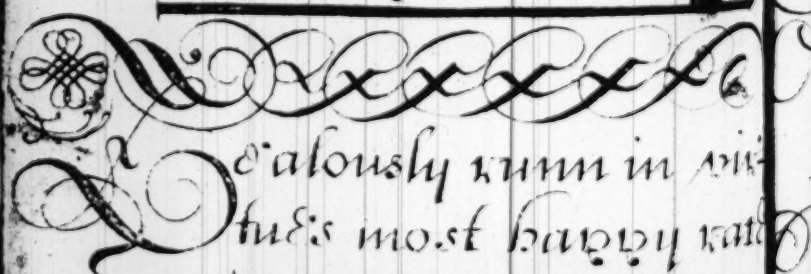 Zealously runn in vir-
tue's most happy race